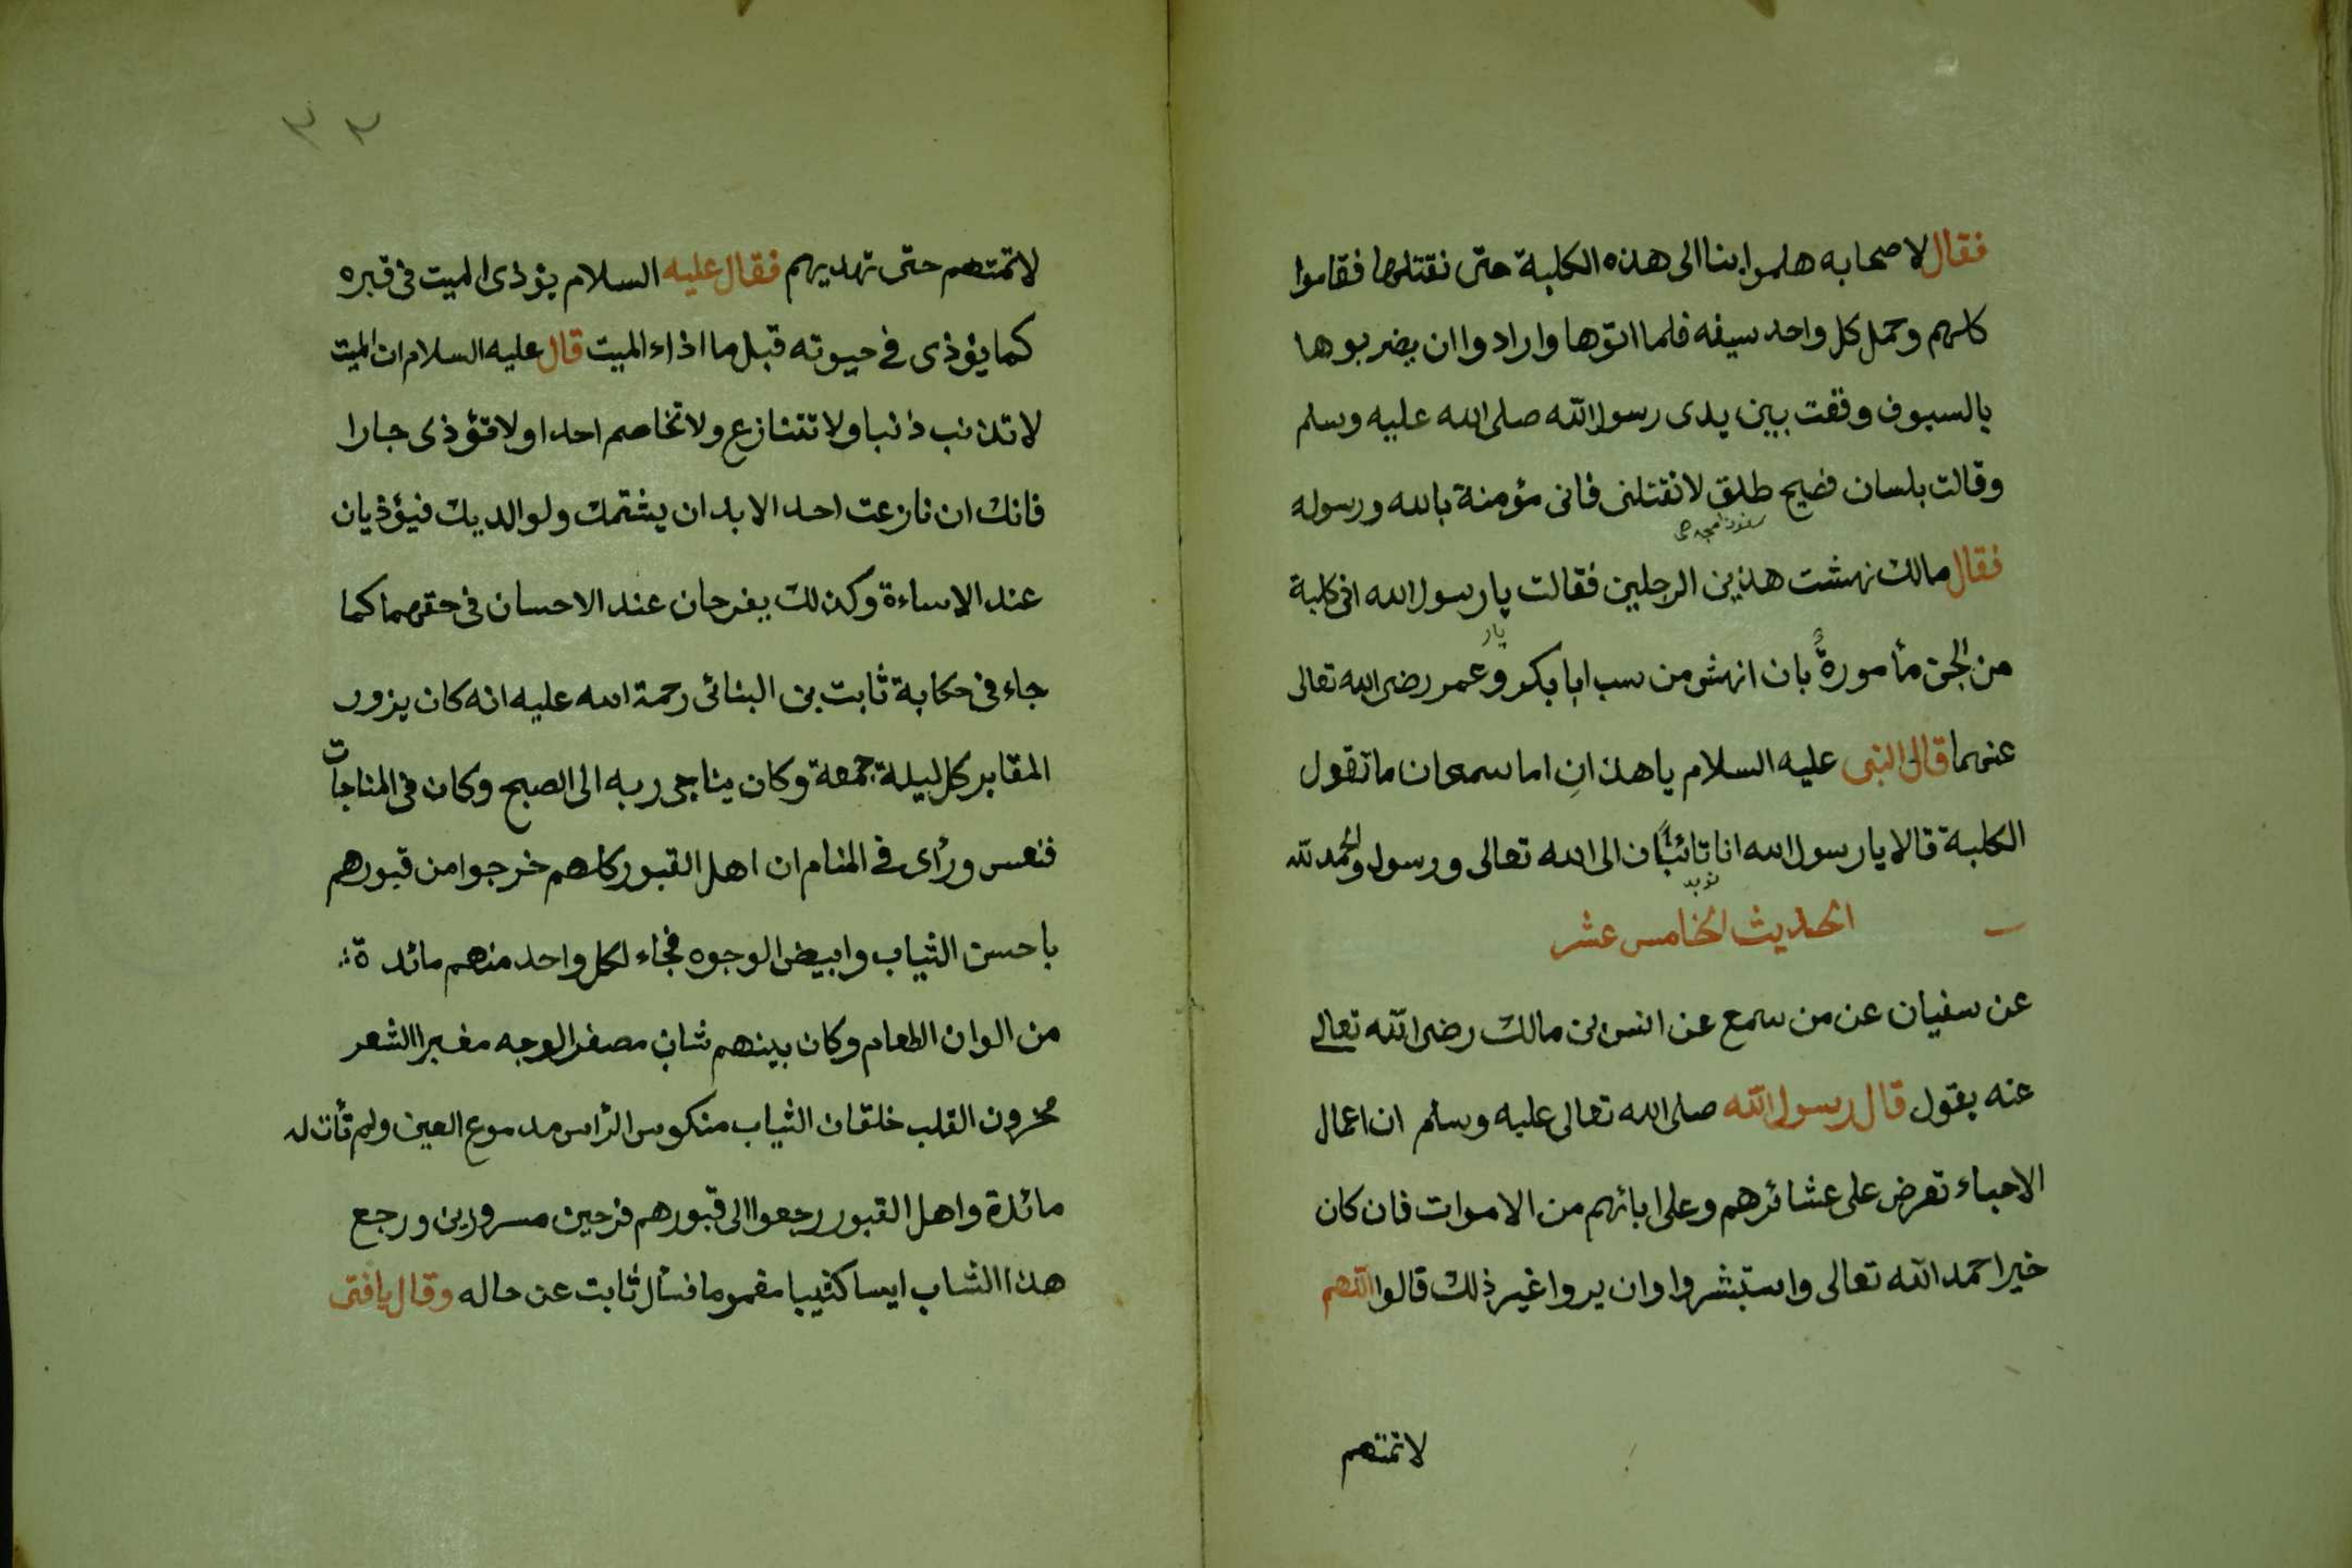 فقال لاصحابه هلموا بنا الى هذه الكلبة حتى نقتلها فقاموا
كلهم وحمل كل واحد سيفه فلما اتوها وارادوا ان يضربوها
بالسيوف وقفت بين يدى رسول الله صلى الله عليه وسلم
وقالت بلسان فضيح طلق لا تقتلنى فانى مؤمنة بالله ورسوله
فقال مالك نهشت هذين الرجلين فقالت يا رسول الله انى كلبة
من الجن مأمورة بان انهش من سب ابا بكر و عمر رضى الله تعالى
عنهما قال النبى عليه السلام يا هذانِ اما سمعان ما تقول
الكلبة قالا يا رسول الله انا تائبان الى الله تعالى ورسول والحمد لله
الحديث الخامس عشر
عن سفيان عن من سمع عن انس بن مالك رضى الله تعالى
عنه يقول قال رسول الله صلى الله تعالى عليه وسلم ان اعمال
الاحياء تعرض على عشائرهم وعلى ابائهم من الاموات فان كان
خيرا حمد الله تعالى واستبشروا وان يروا غير ذلك قالوا اللهم
لا تمتهم
٣٣
لا تمتهم حتى تهديهم فقال عليه السلام يؤذى الميت فى قبره
كما يؤذى في حيوته قبل ما اذاء الميت قال عليه السلام ان الميت
لا تذنب ذنبا ولا تتنازع ولا تخاصم احدا ولا تؤذى جارا
فانك ان نازعت احد الابد ان يشتمك ولوالديك فيؤذيان
عند الاساءة وكذلك يفرحان عند الاحسان فى حقهما كما
جاء فى حكاية ثابت بن البنائى رحمة الله عليه انه كان يزور
المقابر كل ليلة جمعة وكان يناجى ربه الى الصبح وكان فى المناجات
فنعس ورأى في المنام ان اهل القبور كلهم خرجوا من قبورهم
باحسن الثياب وابيض الوجوه فجاء لكل واحد منهم مائدة
من الوان الطعام وكان بينهم شاب مصفر الوجه مغبرا الشعر
محزون القلب خلقان الثياب منكوس الرأس مدموع العين ولم تأت له
مائدة واهل القبور رجعوا الى قبورهم فرحين مسرورين ورجع
هذا الشاب ايسا كئيبا مغموما فسأل ثابت عن حاله وقال يا فتى